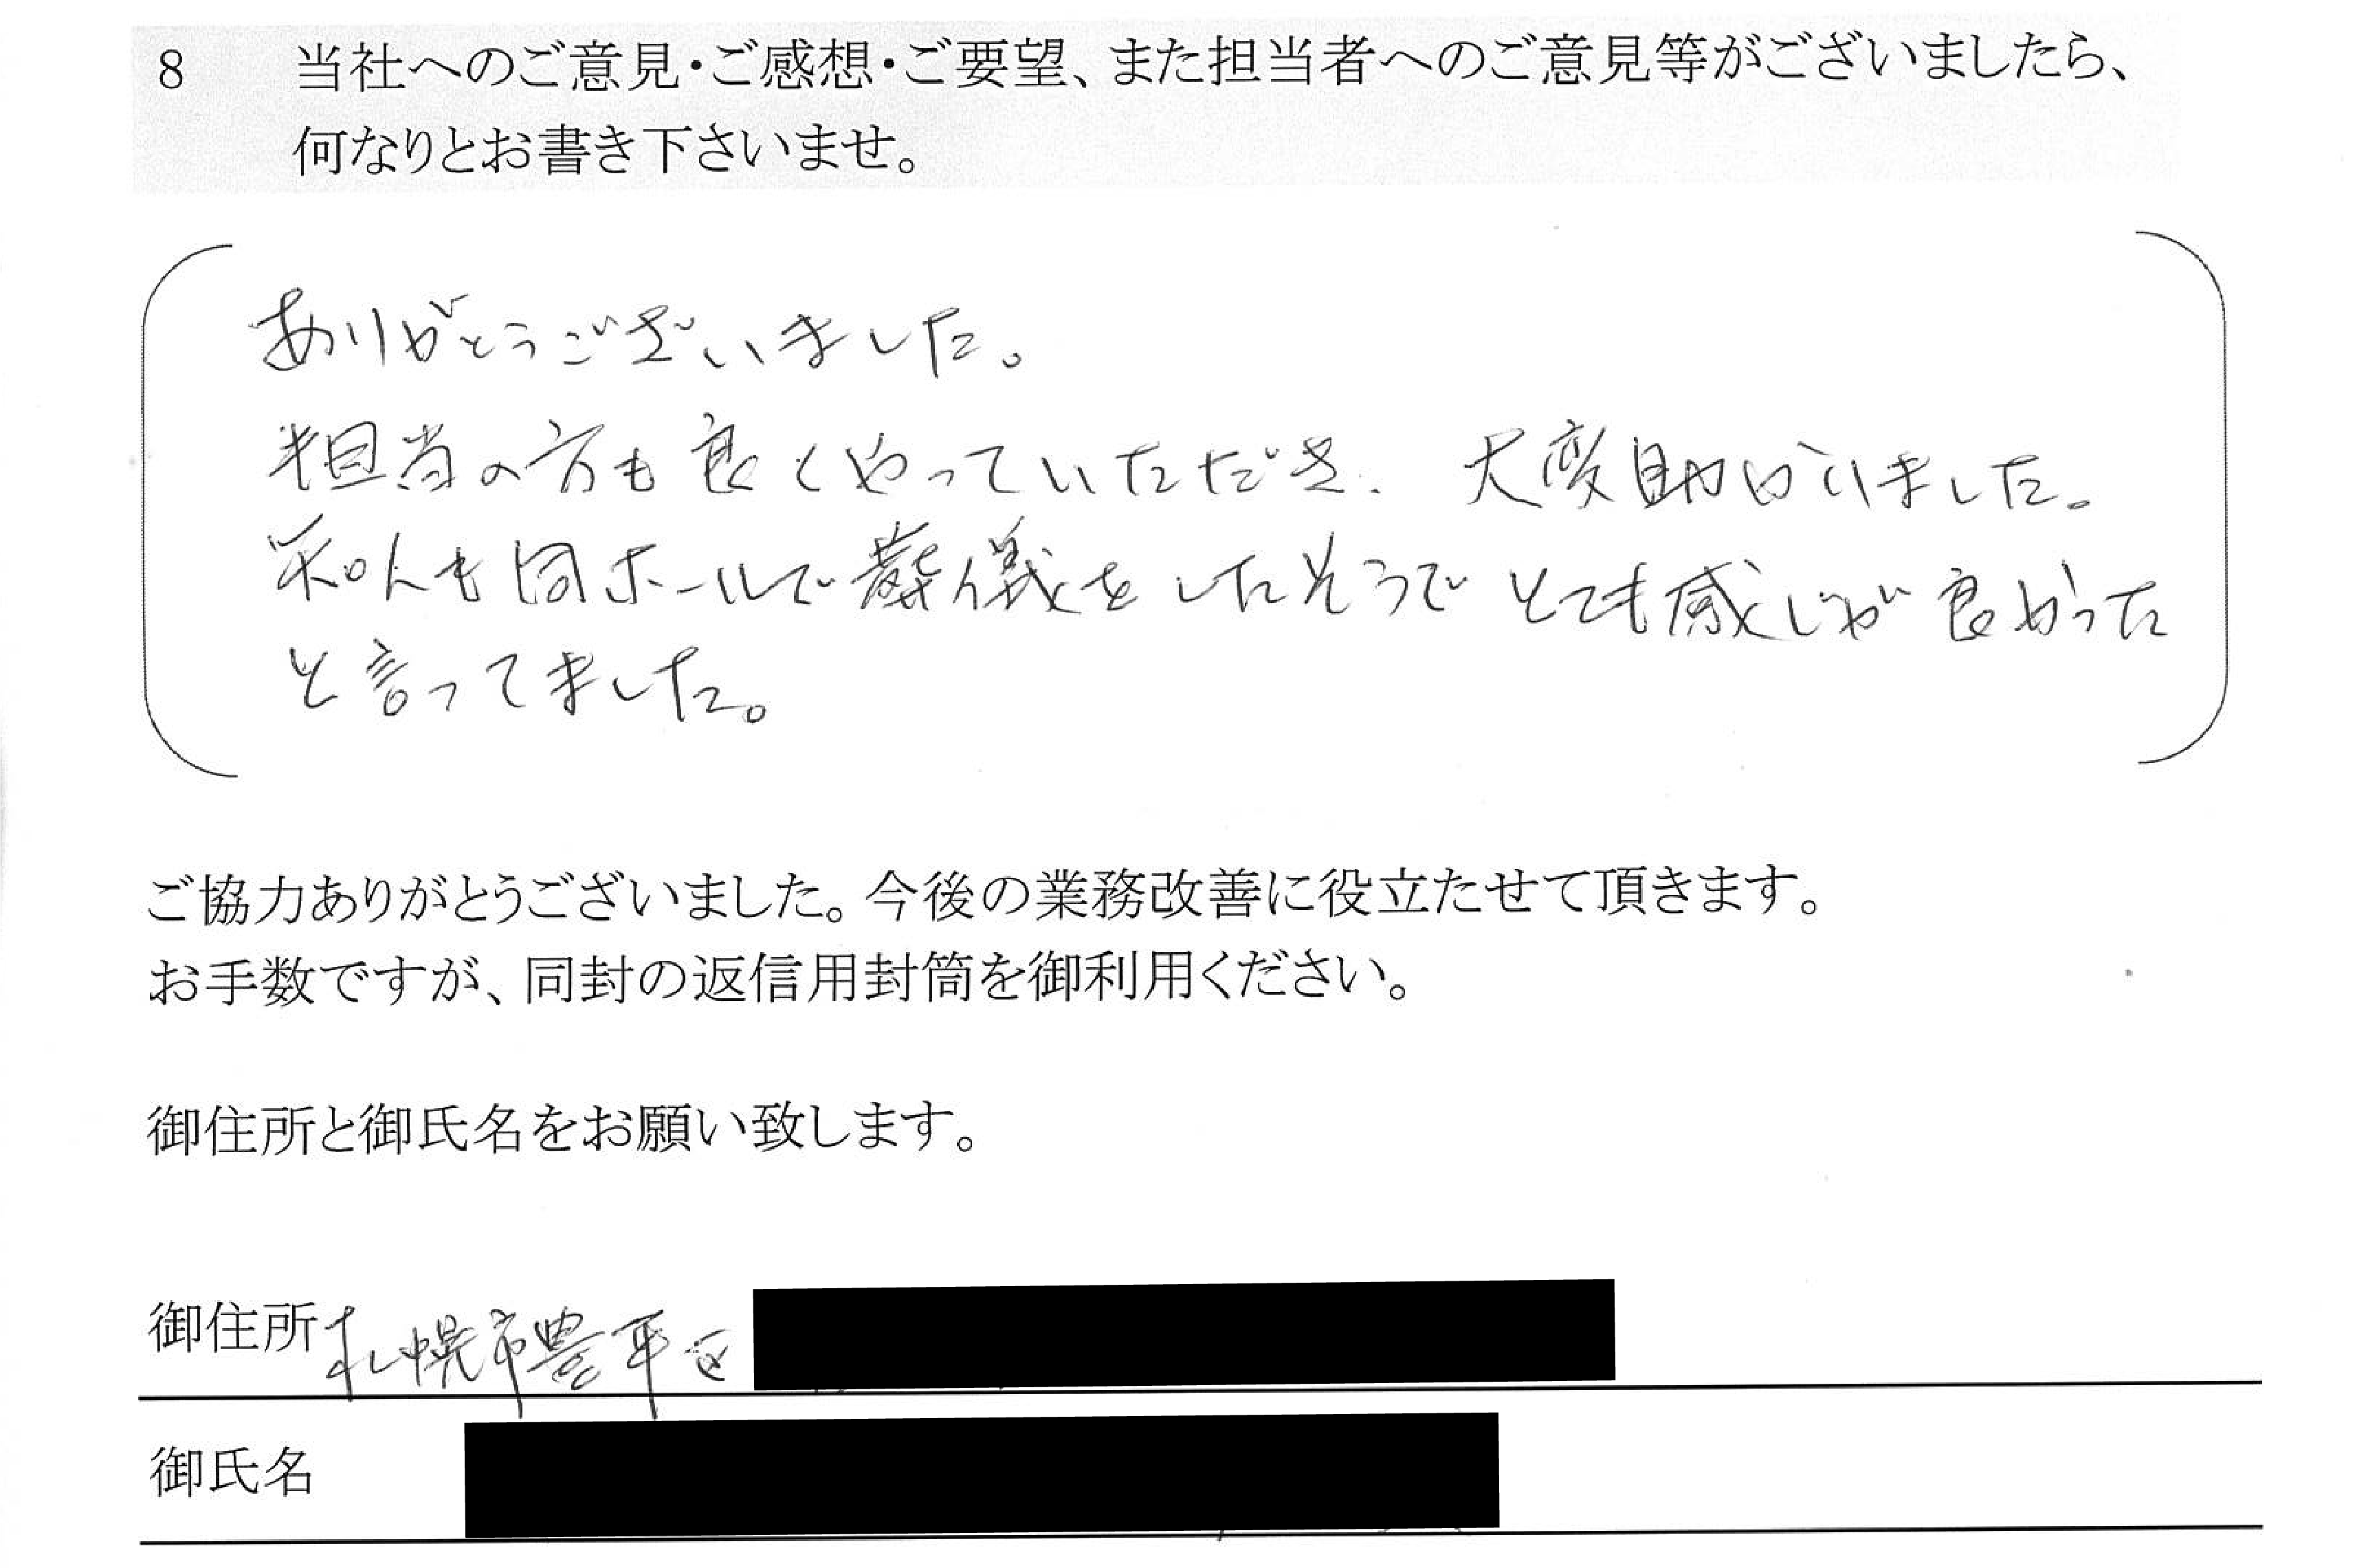 8 当社へのご意見・ご感想・ご要望、また担当者へのご意見等がございましたら、
何なりとお書き下さいませ。
ありがとうございました。
担当の方も良くやっていただき、大変助かりました。
知人も同ホールで葬儀をしたそうでとても感じが良かった
と言ってました。
ご協力ありがとうございました。今後の業務改善に役立たせて頂きます。
お手数ですが、同封の返信用封筒を御利用ください。
御住所と御氏名をお願い致します。
御住所 札幌市豊平区
御氏名